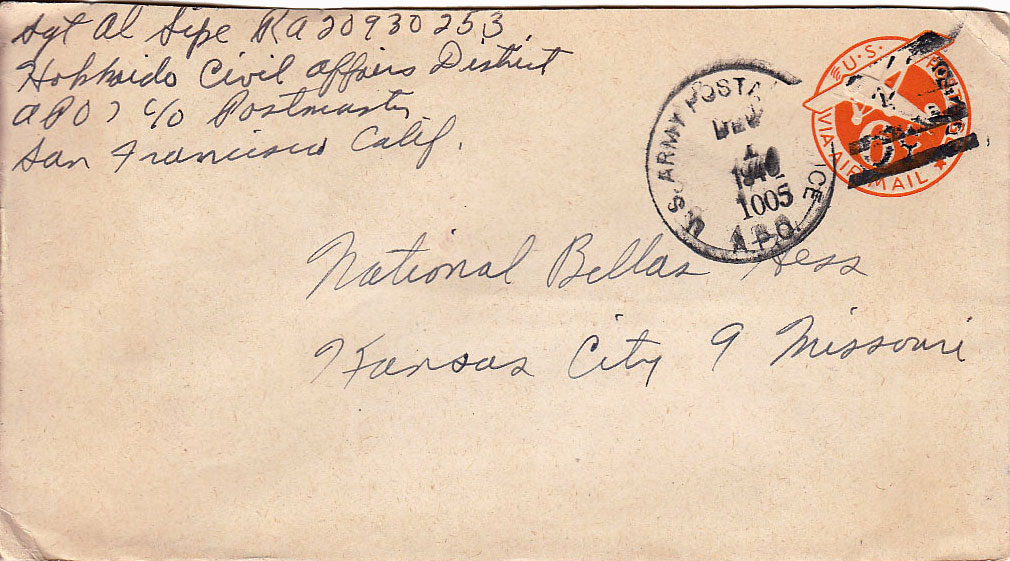 Sgt Al Sipe RA20930253
Hokkaido Civil Affairs District
APO 7 c/o Postmaster
San Francisco Calif.
U.S. ARMY POSTAL
DEC
1
1005
A.P.O.
U.S. POSTAGE
6¢
VIA AIR MAIL
National Bellas Hess
Kansas City 9 Missouri